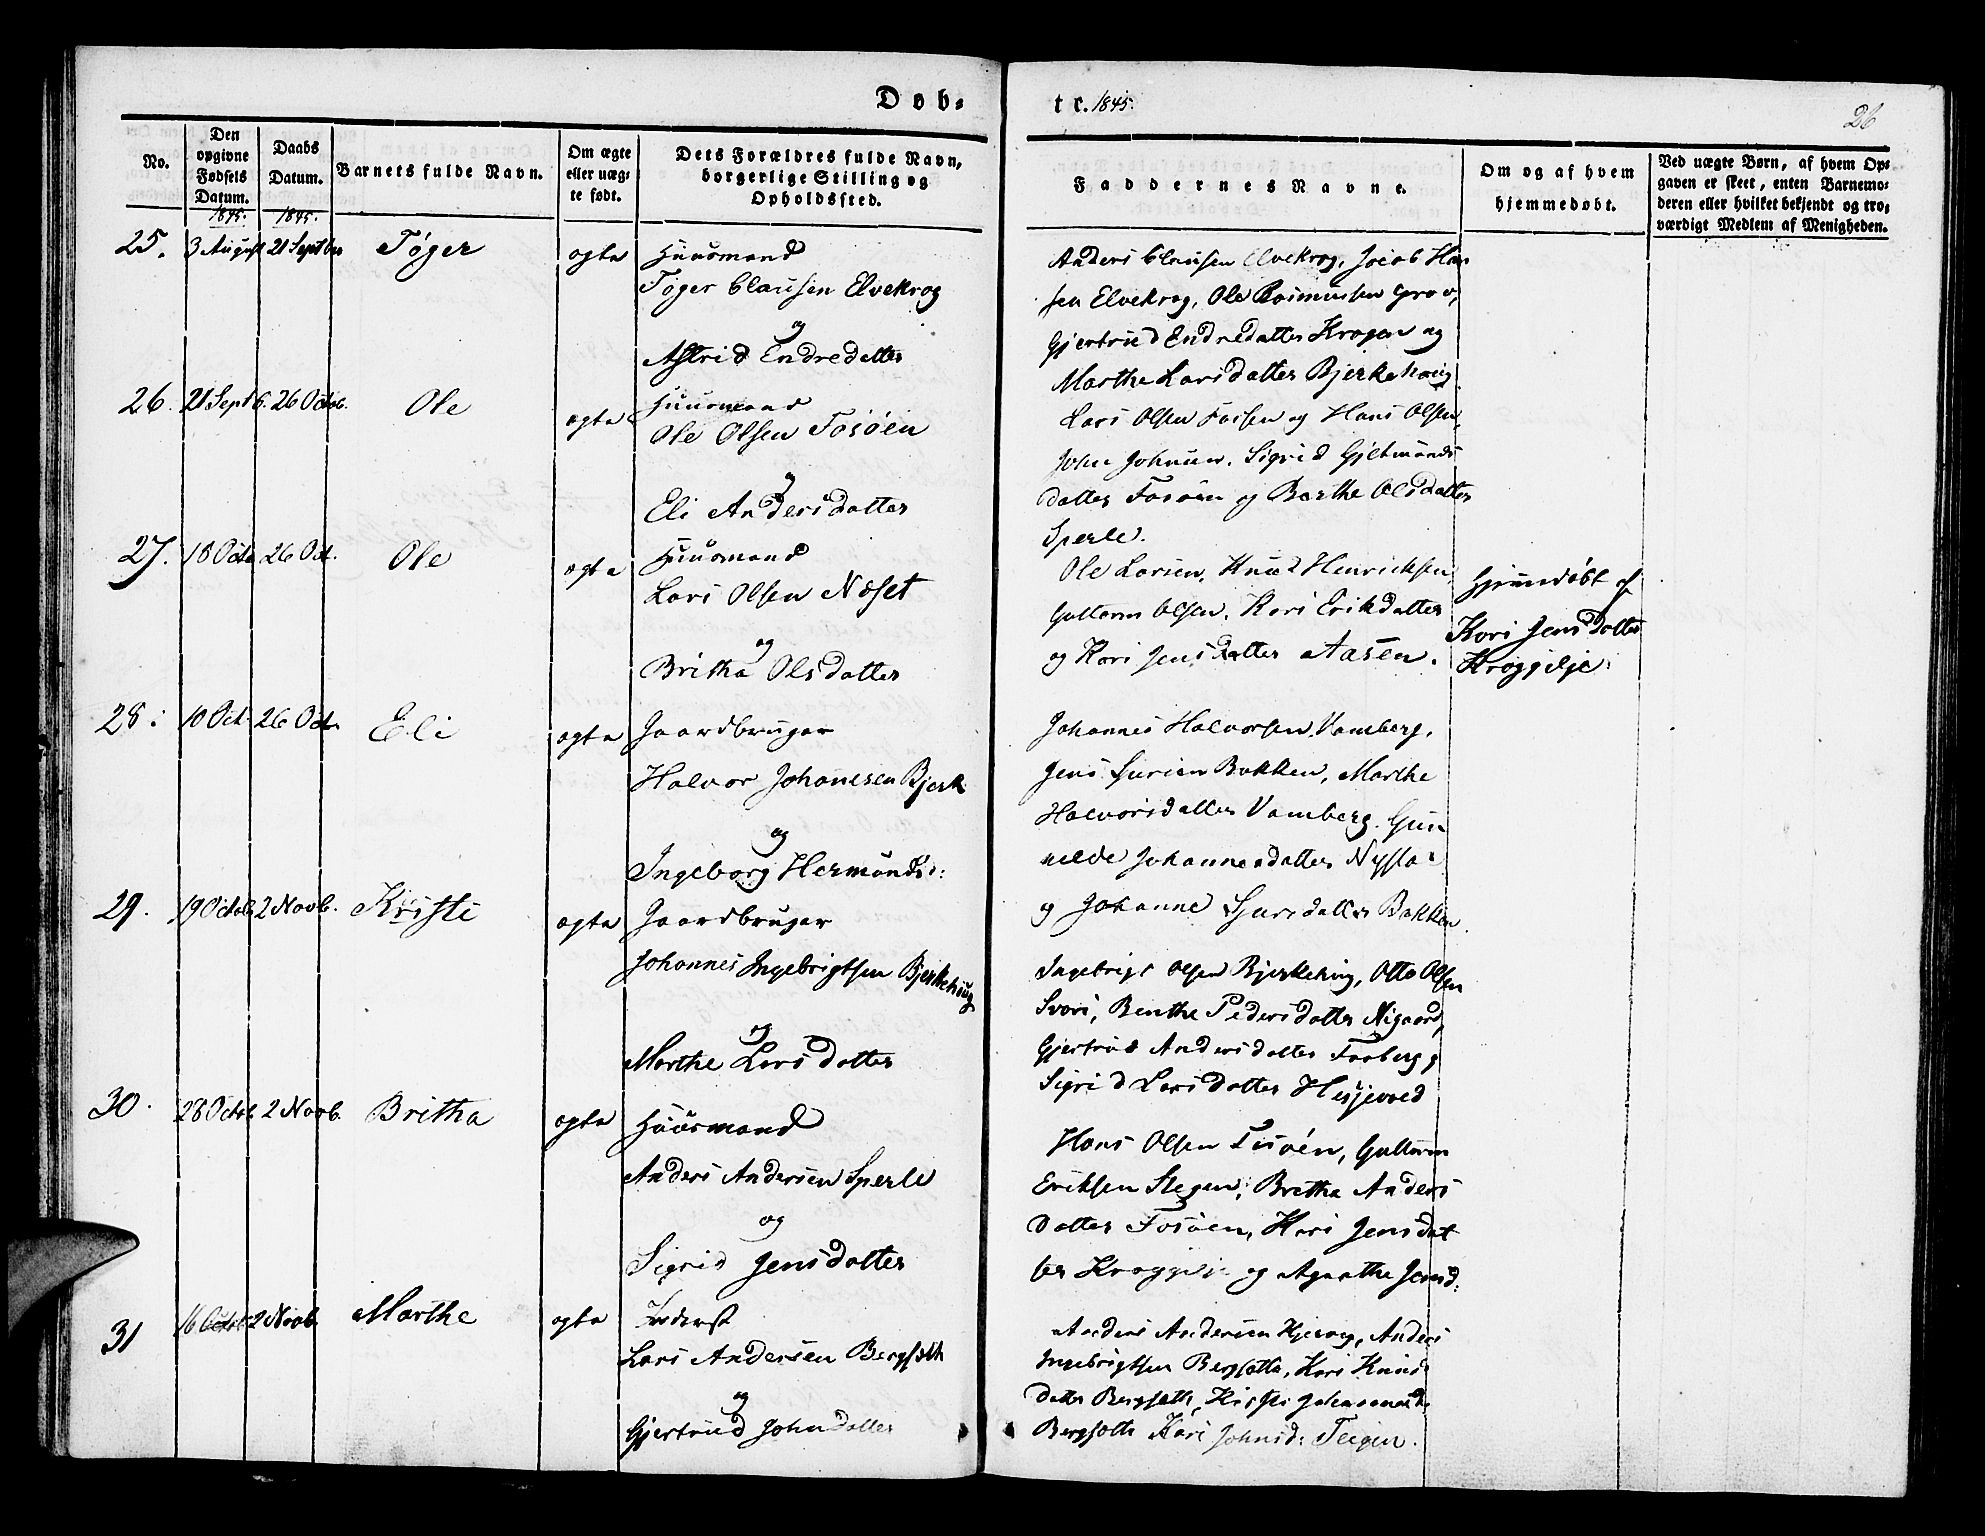 Døb=
te. 1845.
26
No.
Den opgivne Fødsels Datum.
Daabs Datum.
Barnets fulde Navn.
Om ægte eller uæg- te født.
Dets Forældres fulde Navn, borgerlige Stilling og Opholdssted.
Faddernes Navne.
Om og af hvem hjemmedøbt.
Ved uægte Børn, af hvem Op= gaven er skeet, enten Barnemo= deren eller hvilket bekjendt og tro= værdigt Medlem af Menigheden.
1845. 1845.
25. 3 August 21 Septber Tøger ægte Huusmand
Tøger Clausen Elvekrog
og
Astrid Endredatter
Anders Clausen Elvekrog, Jacob Han
sen Elvekrog, Ole Rasmussen Grov,
Gjertrud Endredatter Krogen og
Marthe Larsdatter Bjerkehoug
26. 21 Septb. 26 Octob. Ole ægte Huusmand
Ole Olsen Fosøen
og
Eli Andersdatter
Lars Olsen Fossen og Hans Olsen,
John Johnsen. Sigrid Gjetmunds
datter Fosøen og Berthe Olsdatter
Sperle.
27. 18 Octo 26 Oct. Ole ægte Huusmand
Lars Olsen Næset
og
Britha Olsdatter
Ole Larsen, Knud Henricksen,
Guttorm Olsen. Kari Erikdatter
og Kari Jensdatter Aasen.
Hjemdøbt af
Kari Jensdatter
Kroggilje.
28. 10 Oct. 26 Oct. Eli ægte Gaardbruger
Halvor Johannesen Bjerk
og
Ingeborg Hermunds:
Johannes Halvorsen Vamberg,
Jens Sjursen Bakken, Marthe
Halvorsdatter Vamberg. Gun
nilde Johannesdatter Nysta
og Johanne Sjursdatter Bakken.
29. 19 Octob. 2 Novb. Kristi ægte Gaardbruger
Johannes Ingebrigtsen Bjerkehoug
og
Marthe Larsdatter
Ingebrigt Olsen Bjerkehoug, Otto Olsen
Svori, Benthe Pedersdatter Nigaard,
Gjertrud Andersdatter Faaberg,
Sigrid Larsdatter Hesjevoed
30. 28 Octob. 2 Novb. Britha ægte Huusmand
Anders Andersen Sperle
og
Sigrid Jensdatter
Hans Olsen Fosøen, Guttorm
Eriksen Stegen, Britha Anders
datter Fosøen, Kari Jensdat
ter Kroggilje og Agathe Jensd:
31 16 Octob. 2 Novb. Marthe ægte Inderst
Lars Andersen Bergsæth
og
Gjertrud Johndatter
Anders Andersen, Anders
Ingebrigtsen Bergsætte, Kari Knuds
datter Bergsæth, Kristi Johannesd.
Bergsæth Kari Johnsd: Teigen.